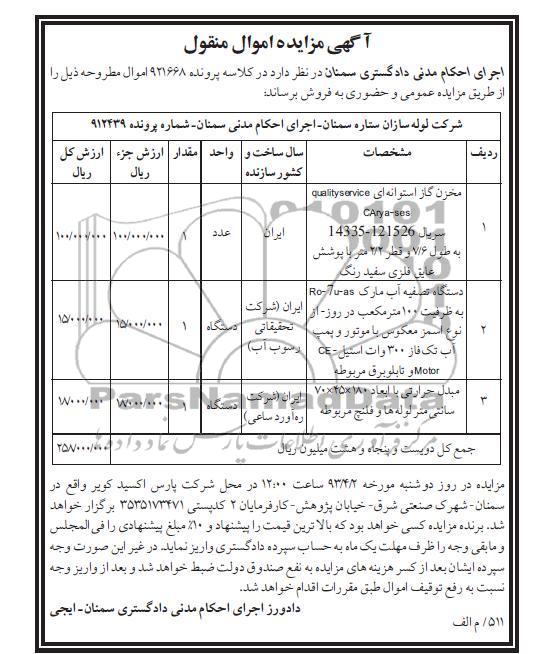 آگهی مزایده اموال منقول
اجرای احکام مدنی دادگستری سمنان در نظر دارد در کلاسه پرونده ۹۲۱۶۶۸ اموال مطروحه ذیل را
از طریق مزایده عمومی و حضوری به فروش برساند:
شرکت لوله سازان ستاره سمنان-اجرای احکام مدنی سمنان-شماره پرونده ۹۱۲۴۳۹
ردیف مشخصات سال ساخت و کشور سازنده واحد مقدار ارزش جزء ریال ارزش کل ریال
۱ مخزن گاز استوانه‌ای qualityservice
CArya-ses
سریال 121526-14335
به طول ۷/۶ و قطر ۲/۲ متر با پوشش
عایق فلزی سفید رنگ
ایران عدد ۱ ۱۰۰/۰۰۰/۰۰۰ ۱۰۰/۰۰۰/۰۰۰
۲ دستگاه تصفیه آب مارک Ro-7u-as
به ظرفیت ۱۰۰ مترمکعب در روز- از
نوع اسمز معکوس با موتور و پمپ
آب تک فاز ۳۰۰ وات استیل-CE
Motor و تابلو برق مربوطه
ایران (شرکت تحقیقاتی رسوب آب) دستگاه ۱ ۱۵/۰۰۰/۰۰۰ ۱۵/۰۰۰/۰۰۰
۳ مبدل حرارتی با ابعاد ۱۸۰×۴۵×۷۰
سانتی متر لوله ها و فلنج مربوطه
ایران (شرکت ره‌آورد ساعی) دستگاه ۱ ۱۸/۰۰۰/۰۰۰ ۱۸/۰۰۰/۰۰۰
جمع کل دویست و پنجاه و هشت میلیون ریال ۲۵۸/۰۰۰/۰۰۰
مزایده در روز دوشنبه مورخه ۹۳/۴/۲ ساعت ۱۲:۰۰ در محل شرکت پارس اکسید کویر واقع در
سمنان- شهرک صنعتی شرق- خیابان پژوهش- کارفرمایان ۲ کدپستی ۳۵۳۵۱۷۳۴۷۱ برگزار خواهد
شد. برنده مزایده کسی خواهد بود که بالاترین قیمت را پیشنهاد و ۱۰٪ مبلغ پیشنهادی را فی المجلس
و مابقی وجه را ظرف مهلت یک ماه به حساب سپرده دادگستری واریز نماید. در غیر این صورت وجه
سپرده ایشان بعد از کسر هزینه های مزایده به نفع صندوق دولت ضبط خواهد شد و بعد از واریز وجه
نسبت به رفع توقیف اموال طبق مقررات اقدام خواهد شد.
دادورز اجرای احکام مدنی دادگستری سمنان- ایجی
۵۱۱/ م الف
ParsNamadData
مرکز فرآوری اطلاعات پارس نماد داده‌ها